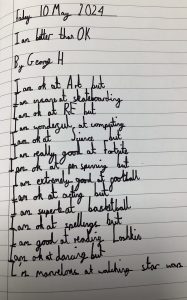 Friday 10 May 2024
I am better than OK
By George H
I am ok at Art but
I am great at skateboarding
I am ok at RE but
I am wonderful at computing
I am ok at Science but
I am really good at Fortnite
I am ok at pen spinning but
I am extremely good at football
I am ok at acting but
I am superb at basketball
I am ok at spellings but
I am good at reading
I am ok at dancing but
I'm marvelous at watching star wars